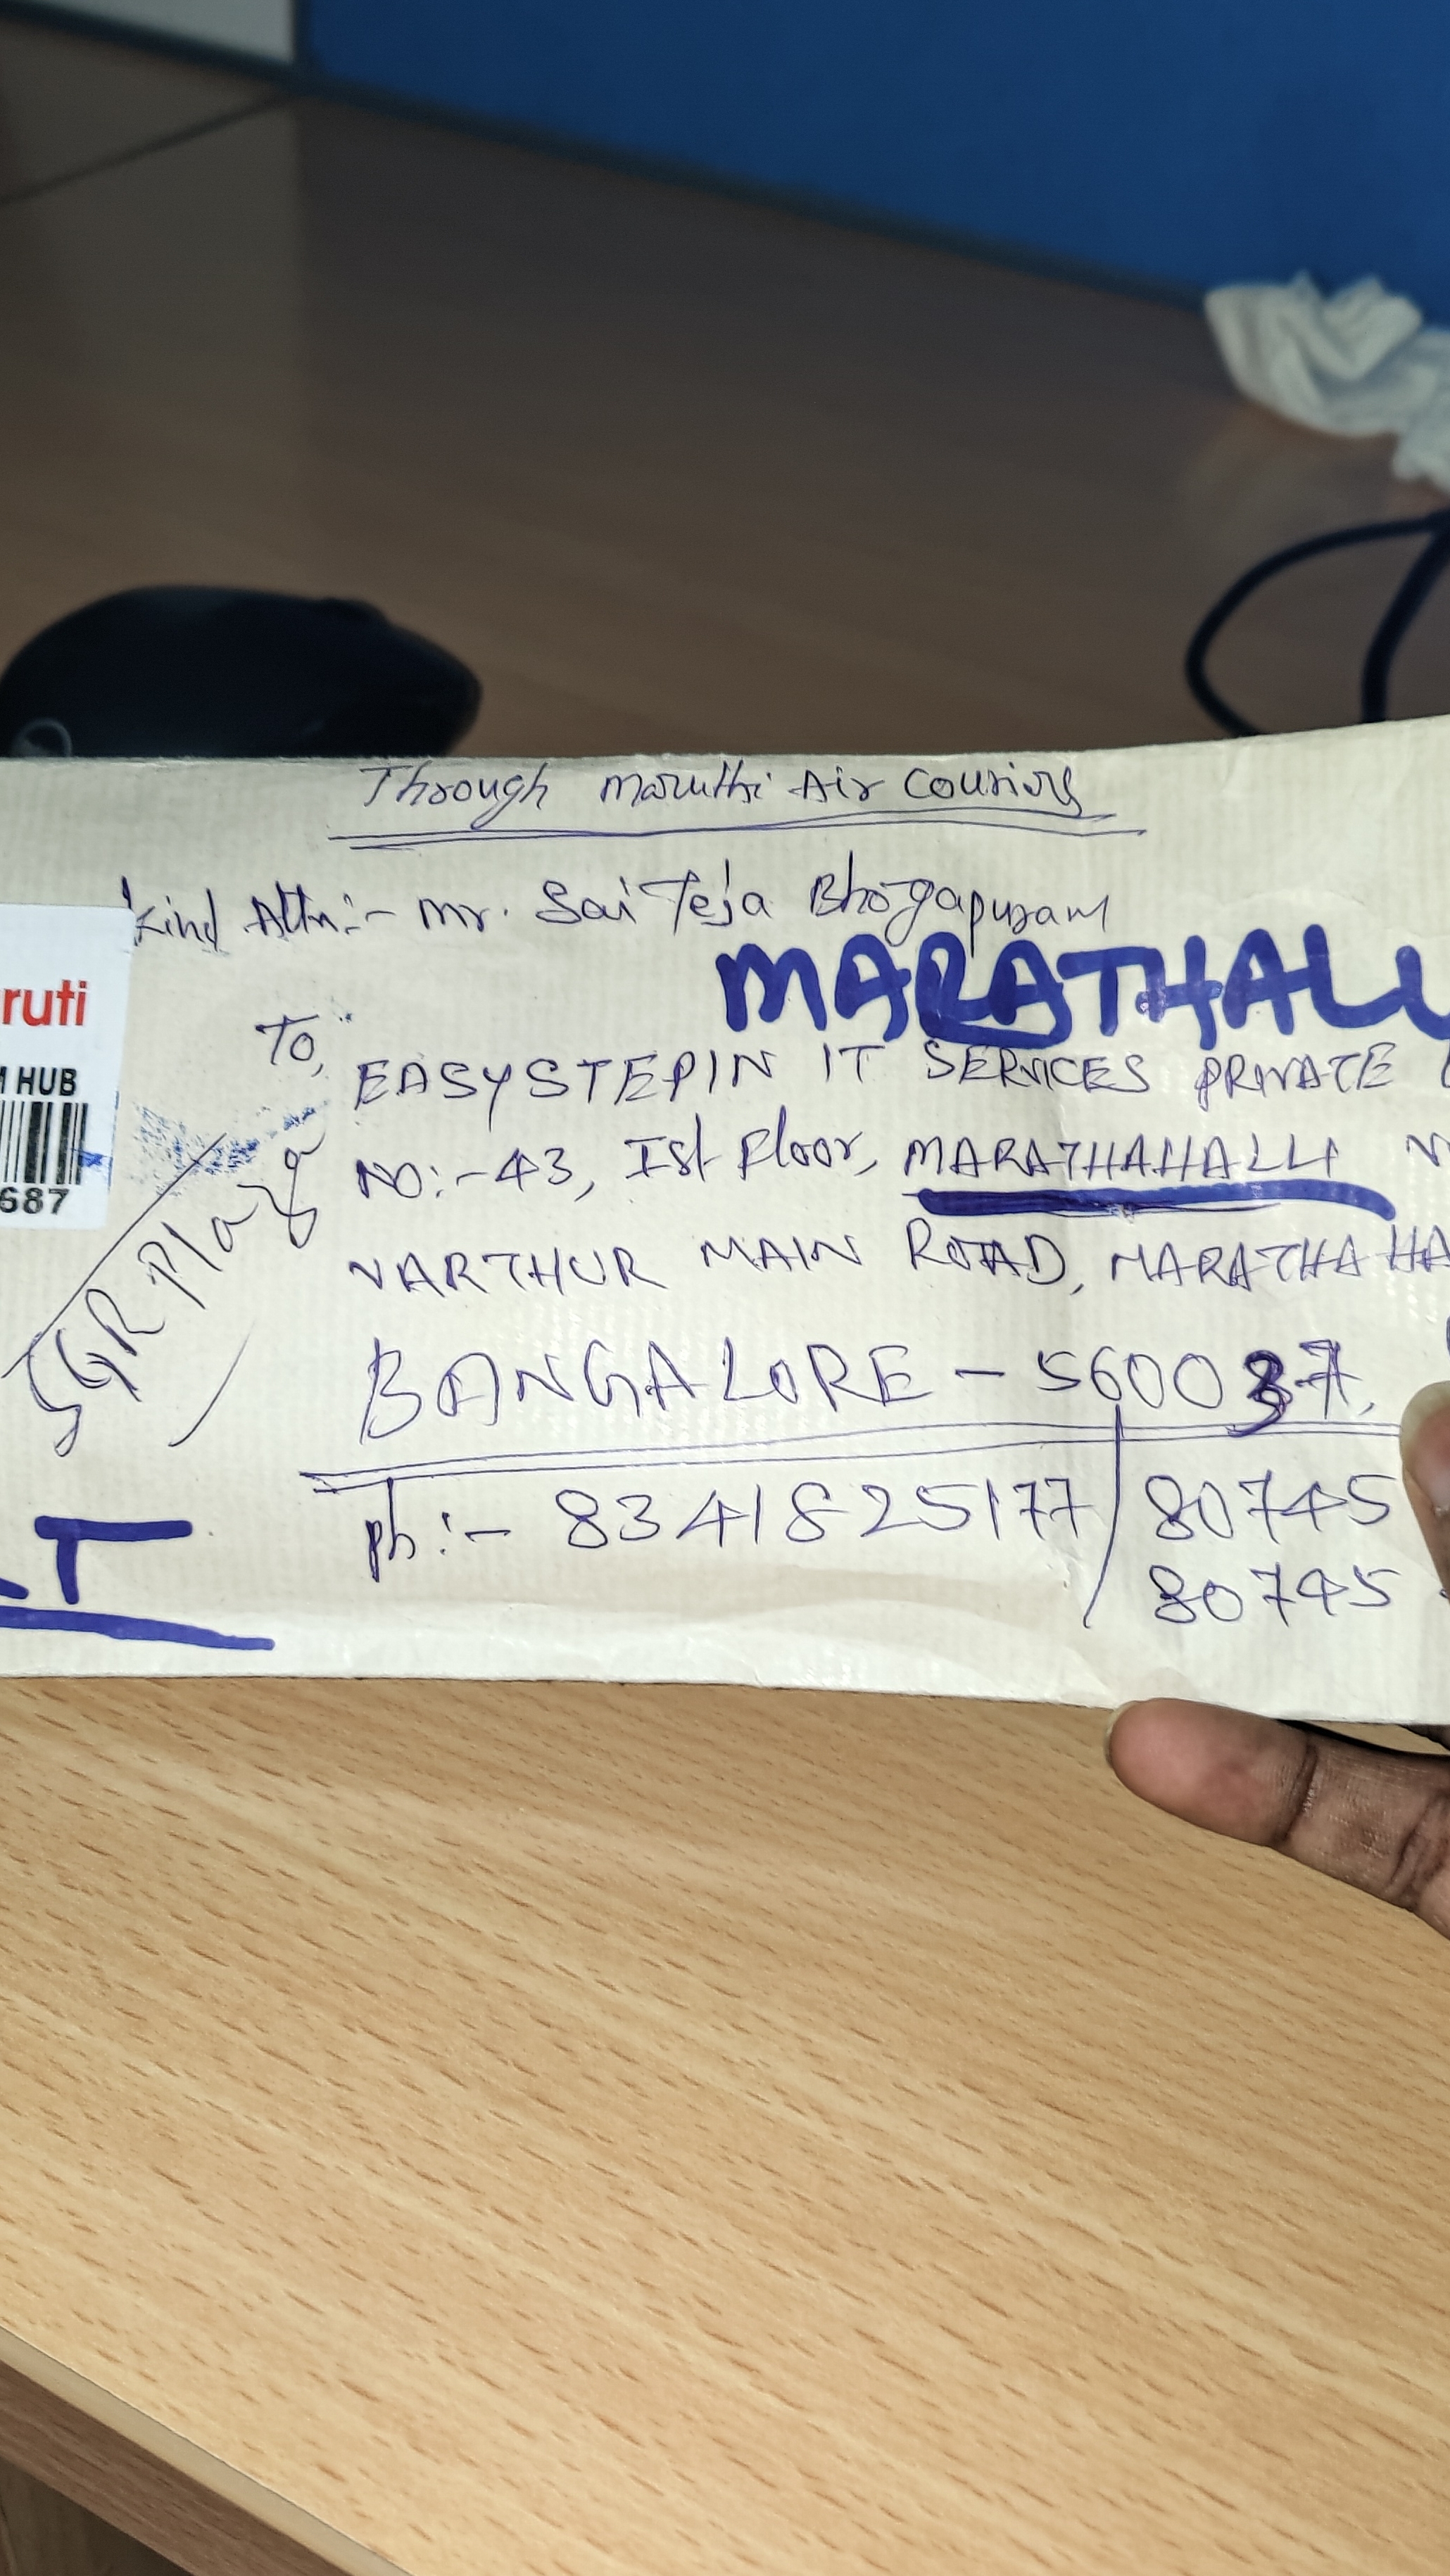 Through Maruthi Air Couriers
Kind Attn:- Mr. Sai Teja Bhogapuram
MARATHALL
ruti
M HUB
687
To,
EASYSTEPIN IT SERVICES PRIVATE
NO:-43, Ist Floor, MARATHAHALLI
VARTHUR MAIN ROAD, MARATHAHA
BANGALORE - 560037.
Ph:- 8341825177 / 80745
80745
SGR Plaza
T